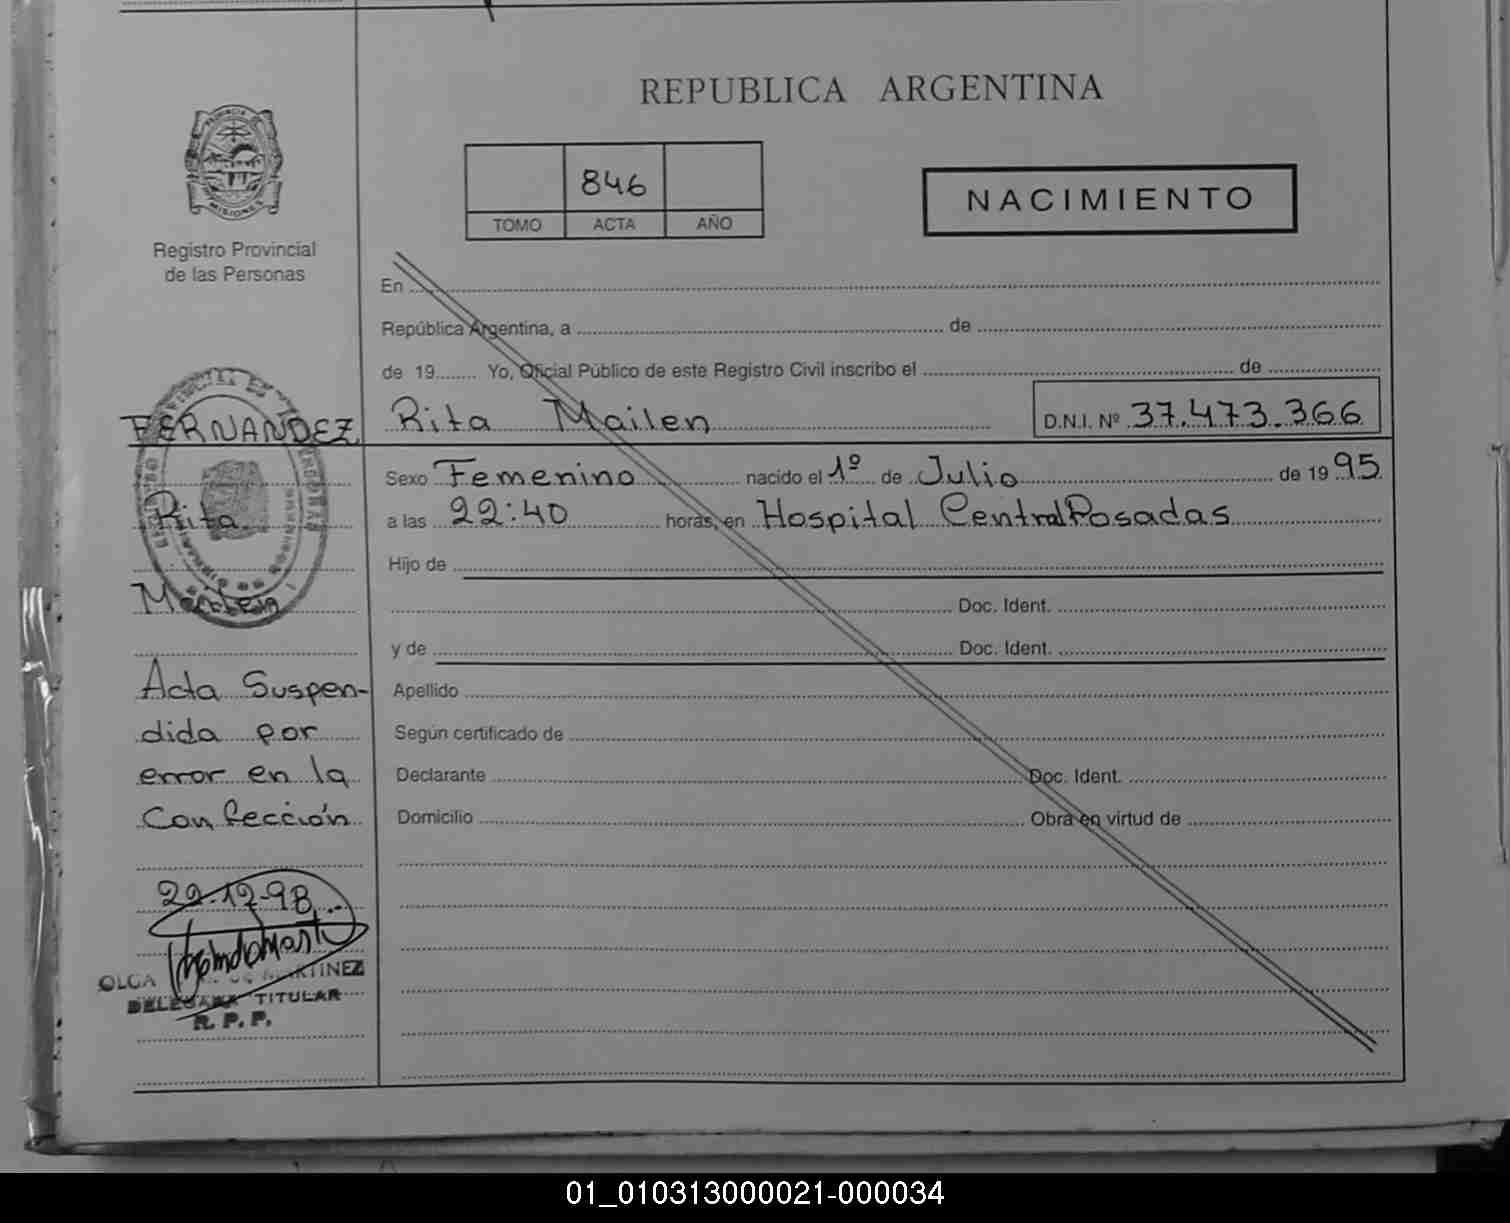 REPUBLICA ARGENTINA
PROVINCIA DE
MISIONES
846
TOMO ACTA AÑO
NACIMIENTO
Registro Provincial
de las Personas
En
República Argentina, a de
de 19 Yo, Oficial Público de este Registro Civil inscribo el de
FERNANDEZ Rita Mailen D.N.I. Nº 37.473.366
Sexo Femenino nacido el 1º de Julio de 1995
Rita a las 22:40 horas, en Hospital Central Posadas
Hijo de
Mailen Doc. Ident.
y de Doc. Ident.
Acta Suspen- Apellido
dida por Según certificado de
error en la Declarante Doc. Ident.
Confección Domicilio Obra en virtud de
22-12-98
OLGA MARTINEZ
DELEGADA TITULAR
R. P. P.
01_010313000021-000034